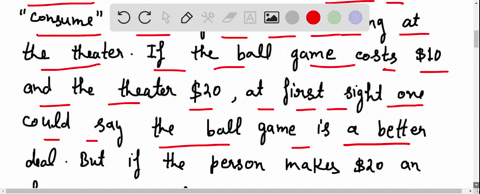 "consume"
at
the theater. If the ball game costs $10
and the theater $20, at first sight one
could say the ball game is a better
deal. But if the person makes $20 an